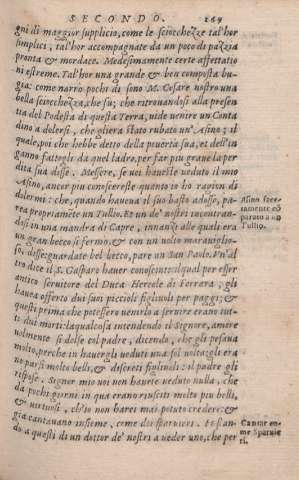 SECONDO. 169
gni di maggior supplicio, come le sciocchezze tal'hor
simplici, tal'hor accompagnate da un poco di pazzia
pronta & mordace. Medesimamente certe affettatio
ni estreme. Tal'hor una grande & ben composta bu-
gia: come narrò pochi dì sono M. Cesare nostro una
bella sciocchezza, che fu; che ritrouandosi alla presen
tia del Podestà di questa Terra, uide uenire un Conta
dino a dolersi, che gliera stato rubato un'Asino; il
quale, poi che hebbe detto della pouertà sua, et dell'in
ganno fattogli da quel ladro, per far piu graue la per
dita sua disse. Messere, se uoi haueste ueduto il mio
Asino, ancor piu conoscereste quanto io ho ragion di
dolermi: che, quando haueua il suo basto adosso, pa-
rea propriamēte un Tullio. Et un de' nostri incontran-
dosi in una mandra di Capre, innanzi alle quali era
un gran becco si fermò, & con un uolto marauiglio-
so, disse: guardate bel becco, pare un San Paolo. Vn'al
tro dice il S. Gasparo hauer conosciuto: il qual per esser
antico seruitore del Duca Hercole di Ferrara, gli
haueua offerto dui suoi piccioli figliuoli per paggi; &
questi prima che potessero uenirlo a seruire erano tut-
ti dui morti: la qual cosa intendendo il Signore, amore
uolmente si dolse col padre, dicendo, che gli pesaua
molto, perche in hauergli ueduti una sol uolta gli era
no parsi molto belli, & discreti figliuoli: il padre gli
rispose, Signor mio uoi non hauete ueduto nulla, che
da pochi giorni in qua erano riusciti molto piu belli,
& uirtuosi, ch'io non harei mai potuto credere: &
gia cantauano insieme, come doi sparuieri. Et stan-
do a questi dì un dottor de' nostri a ueder uno, che per
Asino
paroto a un
Tullio.
Cantar co-
me Sparuie
ri.